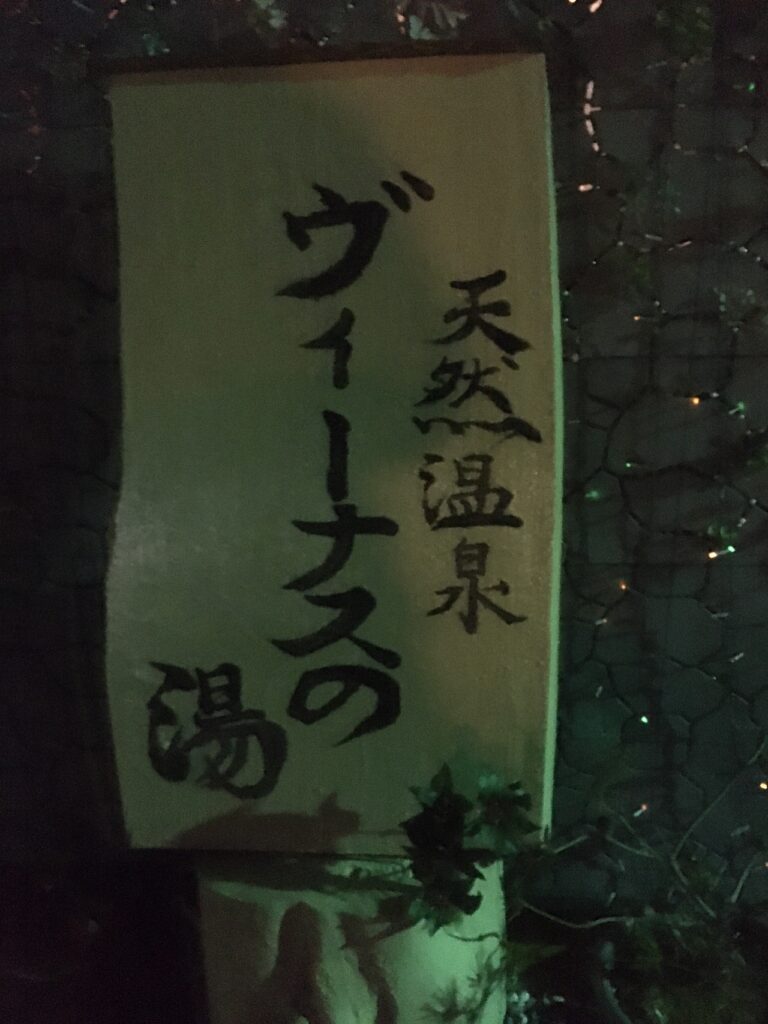 天然温泉
ヴィーナスの
湯